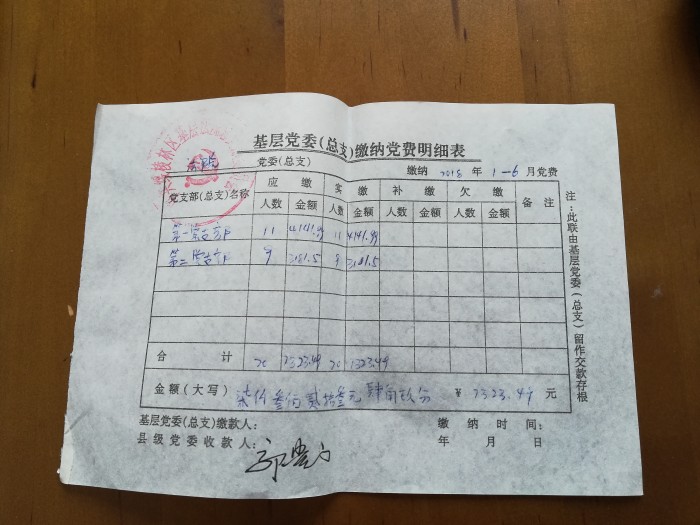 基层党委(总支)缴纳党费明细表
党委(总支) 缴纳 2018 年 1-6 月党费
党支部(总支)名称 应缴 实缴 补缴 欠缴 备注
人数 金额 人数 金额 人数 金额 人数 金额
第一党支部 11 4141.99 11 4141.99
第二党支部 9 3181.5 9 3181.5
合计 20 7323.49 20 7323.49
金额(大写) 柒仟叁佰贰拾叁元肆角玖分 ¥ 7323.49 元
基层党委(总支)缴款人: 缴纳时间:
县级党委收款人: 年 月 日
注:此联由基层党委(总支)留作交款存根